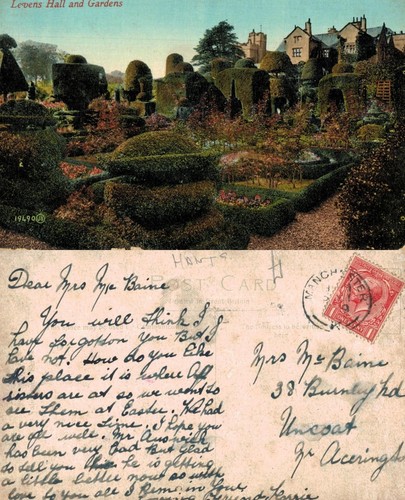 Levens Hall and Gardens
19490
HANTS
POST CARD
MANCHESTER
Dear Mrs Mc Baine
You will think I
have forgotton you But I
have not. How do you like
this place it is where
sisters are at so we went to
see them at Easter. We had
a very nice time. I hope you
are all well. Mr
has been very bad But glad
to tell you he is getting
a little better now so with
love to you all I Rem
Mrs Mc Baine
38 Burnley Rd
Uncoat
Nr Accrington